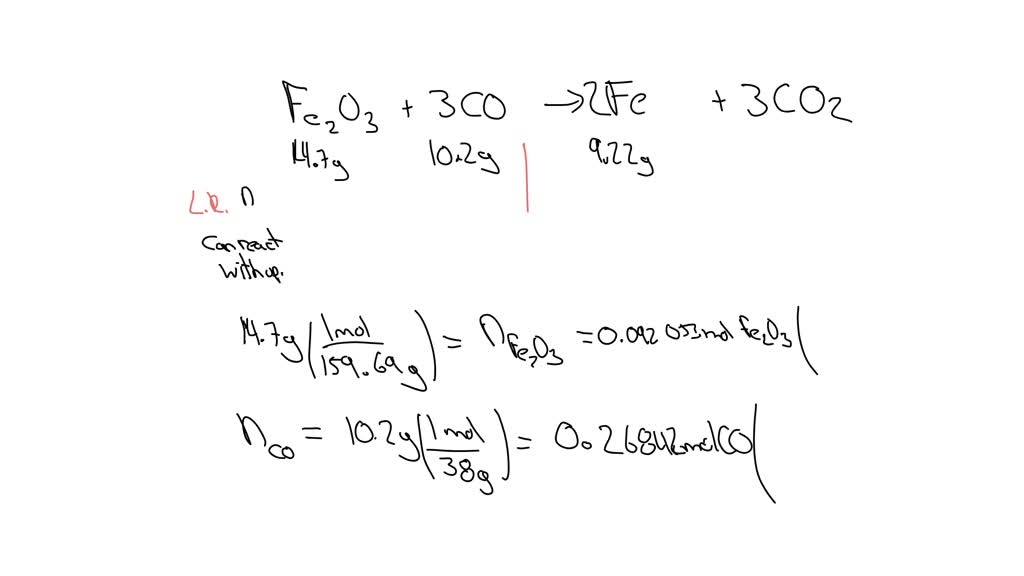 Fe₂O₃ + 3CO → 2Fe + 3CO₂
14.7g 10.2g 9.22g
L.R. n
can react
with op.
14.7g (1mol / 159.69g) = nFe₂O₃ = 0.092053mol Fe₂O₃ (
nCO = 10.2g (1mol / 38g) = 0.26842molCO (